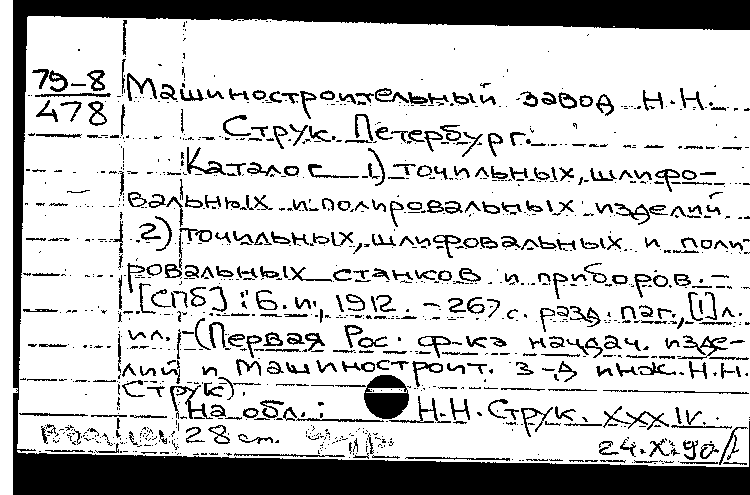 79-8
478
Машиностроительный завод Н.Н.
Струк. Петербург.
Каталог 1) точильных, шлифо-
вальных и полировальных изделий
2) точильных, шлифовальных и поли-
ровальных станков и приборов. -
[СПб]: Б.и., 1912. - 267 с. разд. паг., [1] л.
ил. - (Первая Рос. ф-ка наждач. изде-
лий и машиностроит. з-д инж. Н.Н.
Струк).
На обл.: Н.Н. Струк. XXXIV.
28 см.
24.X.90